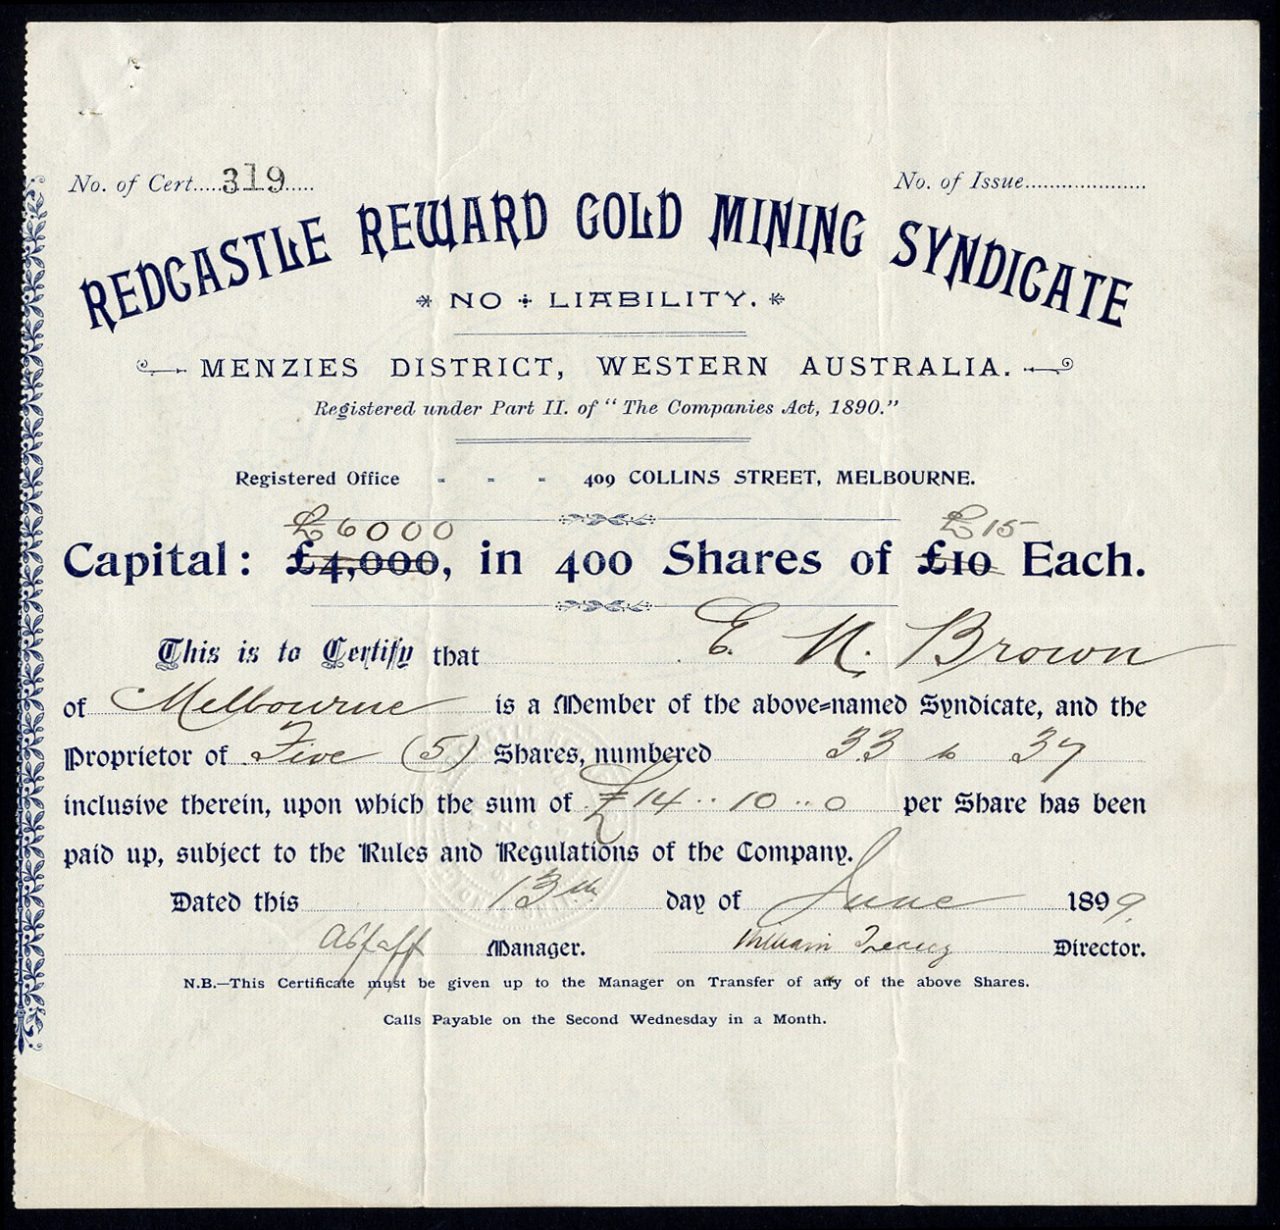 No. of Cert.....319.....
No. of Issue....................
REDCASTLE REWARD GOLD MINING SYNDICATE
NO LIABILITY.
MENZIES DISTRICT, WESTERN AUSTRALIA.
Registered under Part II. of "The Companies Act, 1890."
Registered Office - - - 409 COLLINS STREET, MELBOURNE.
£6000 £15
Capital: £4,000, in 400 Shares of £10 Each.
This is to Certify that E. N. Brown
of Melbourne is a Member of the above-named Syndicate, and the
Proprietor of Five (5) Shares, numbered 33 to 37
inclusive therein, upon which the sum of £14..10..0 per Share has been
paid up, subject to the Rules and Regulations of the Company.
Dated this 13th day of June 1899.
Manager. William Director.
N.B.—This Certificate must be given up to the Manager on Transfer of any of the above Shares.
Calls Payable on the Second Wednesday in a Month.